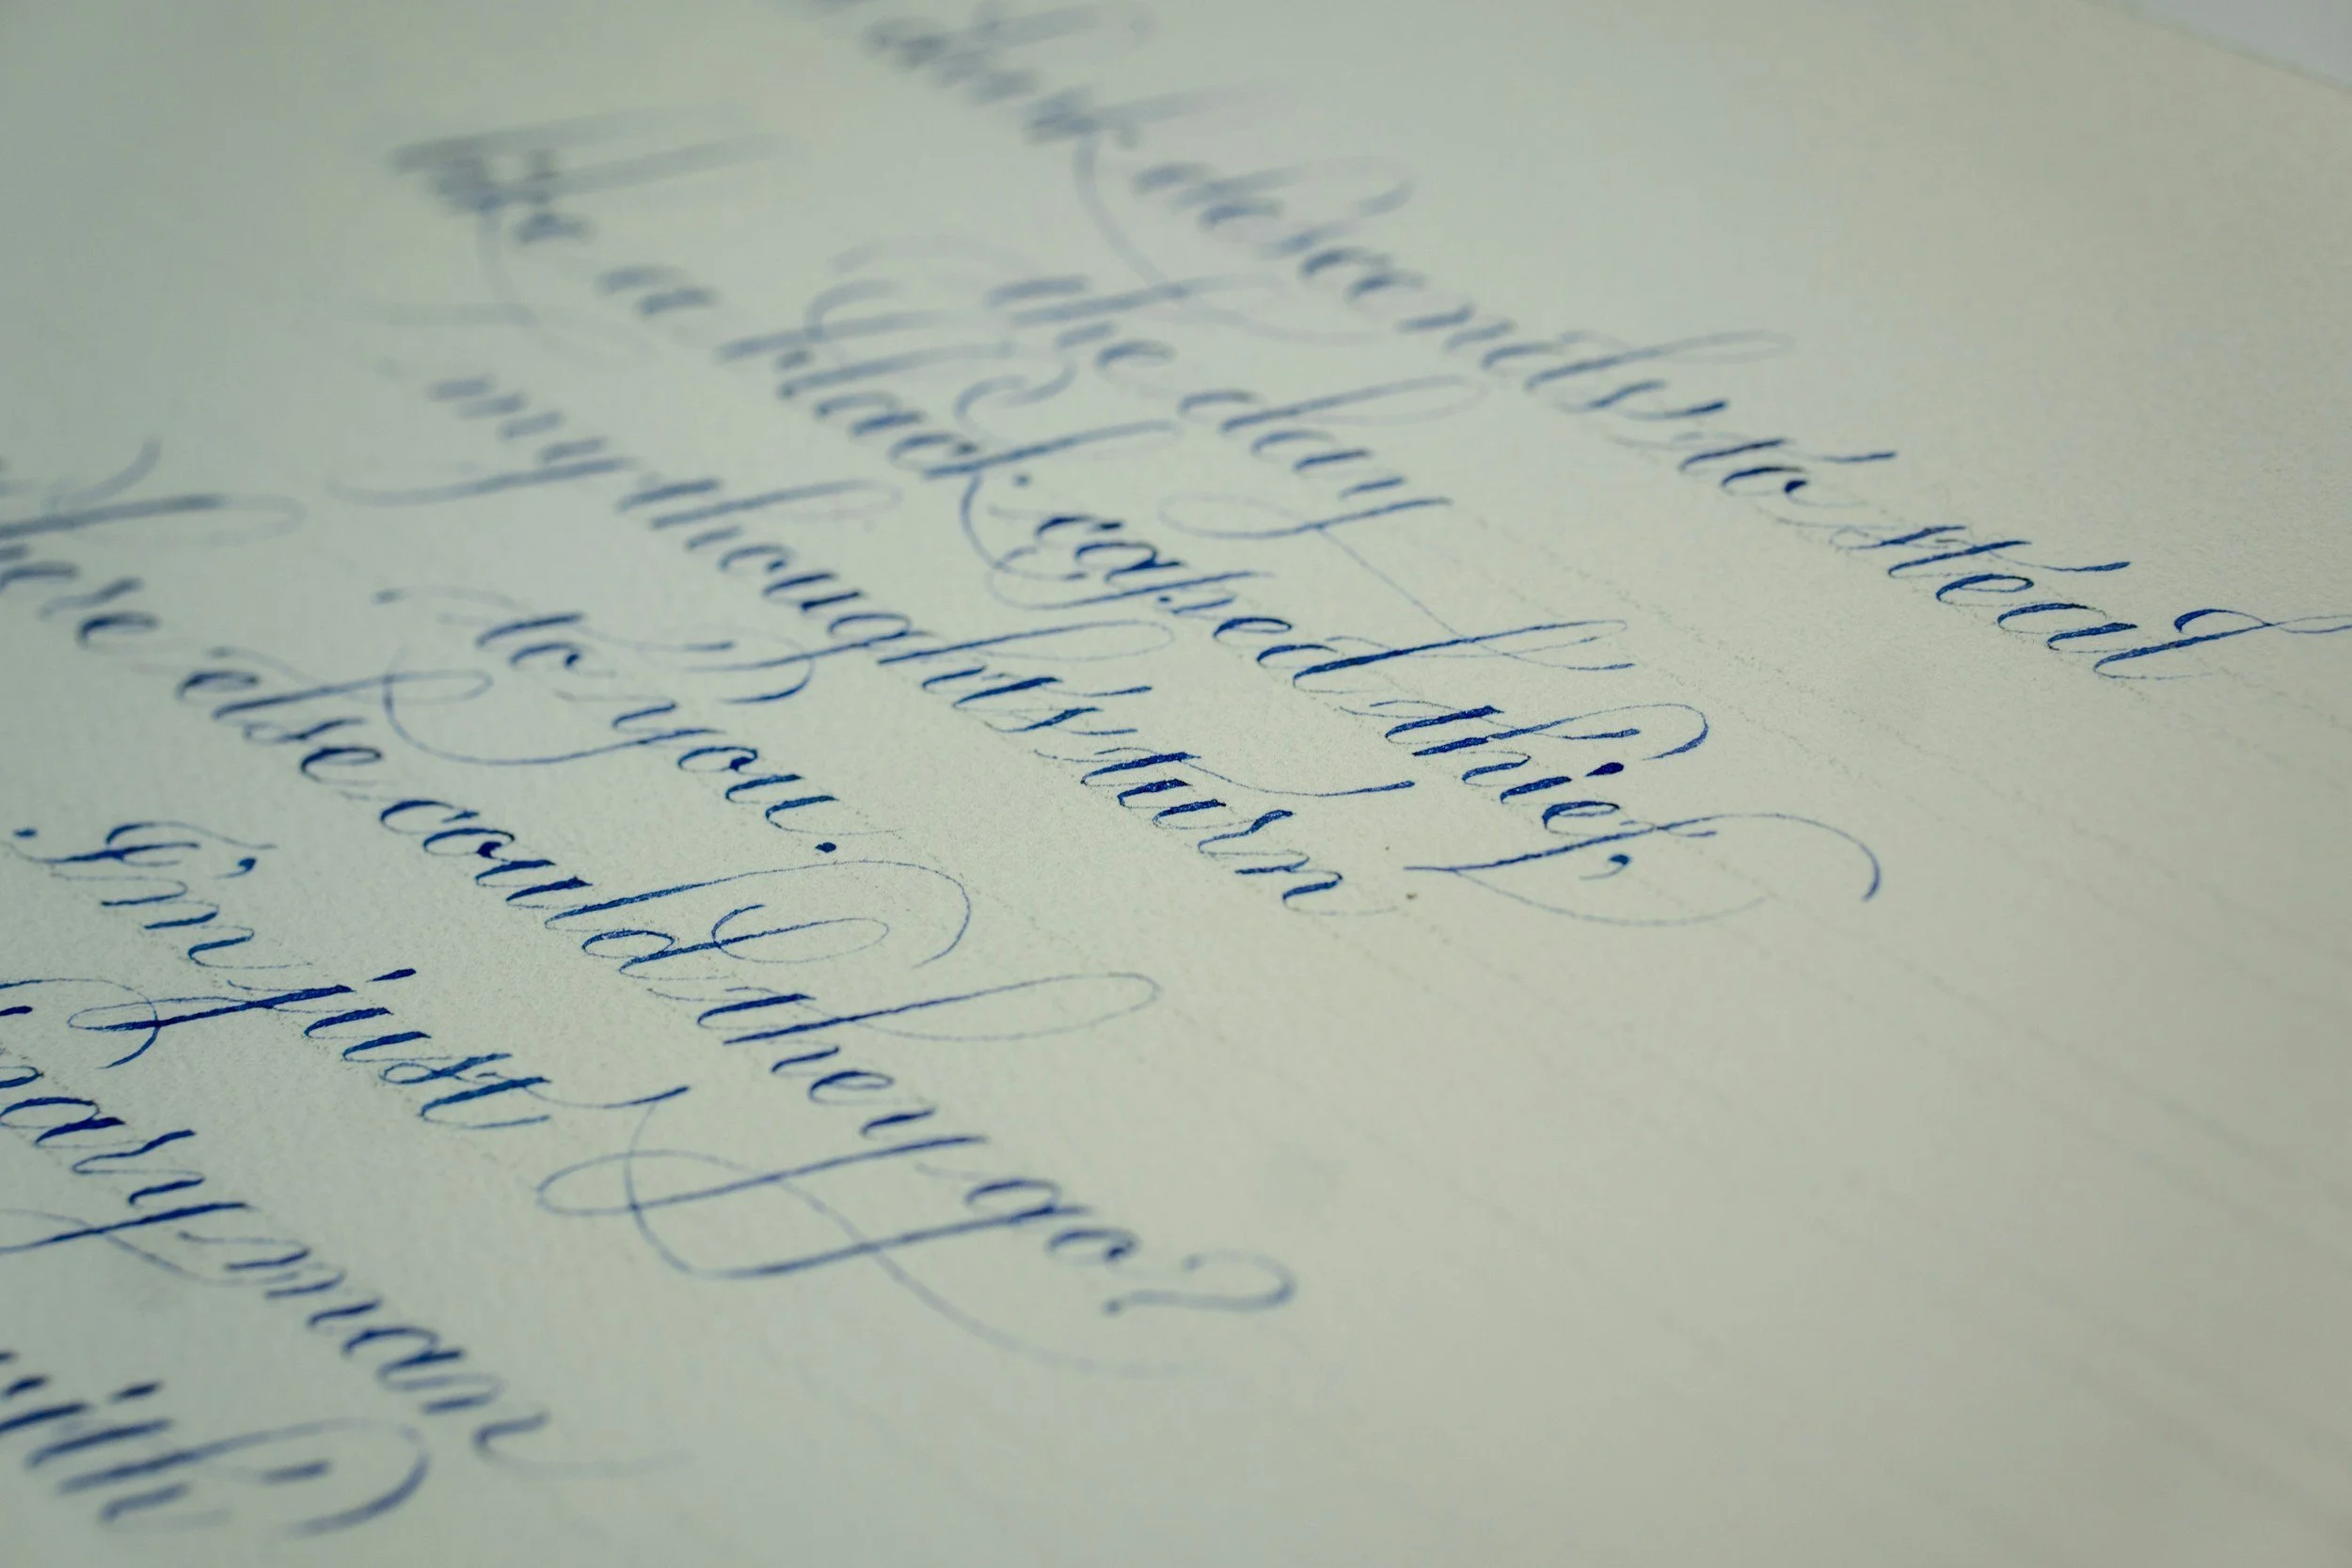 dark descends to steal
the day
like a black caped thief,
my thoughts turn
to you.
where else could they go?
I'm just
man
with